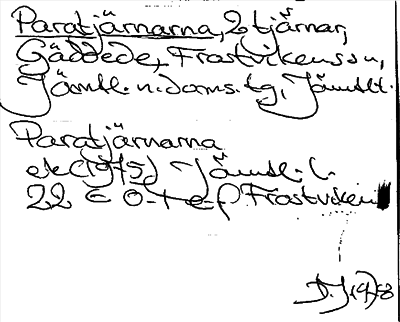 Paratjärnarna, 2 tjärnar,
Gäddede, Frostvikens sn,
Jämtl. n. doms. tg, Jämtl l.
Paratjärnarna
ek (1975) Jämtl. l.
22 E 0-1 e-f Frostviken
D.J. 1978